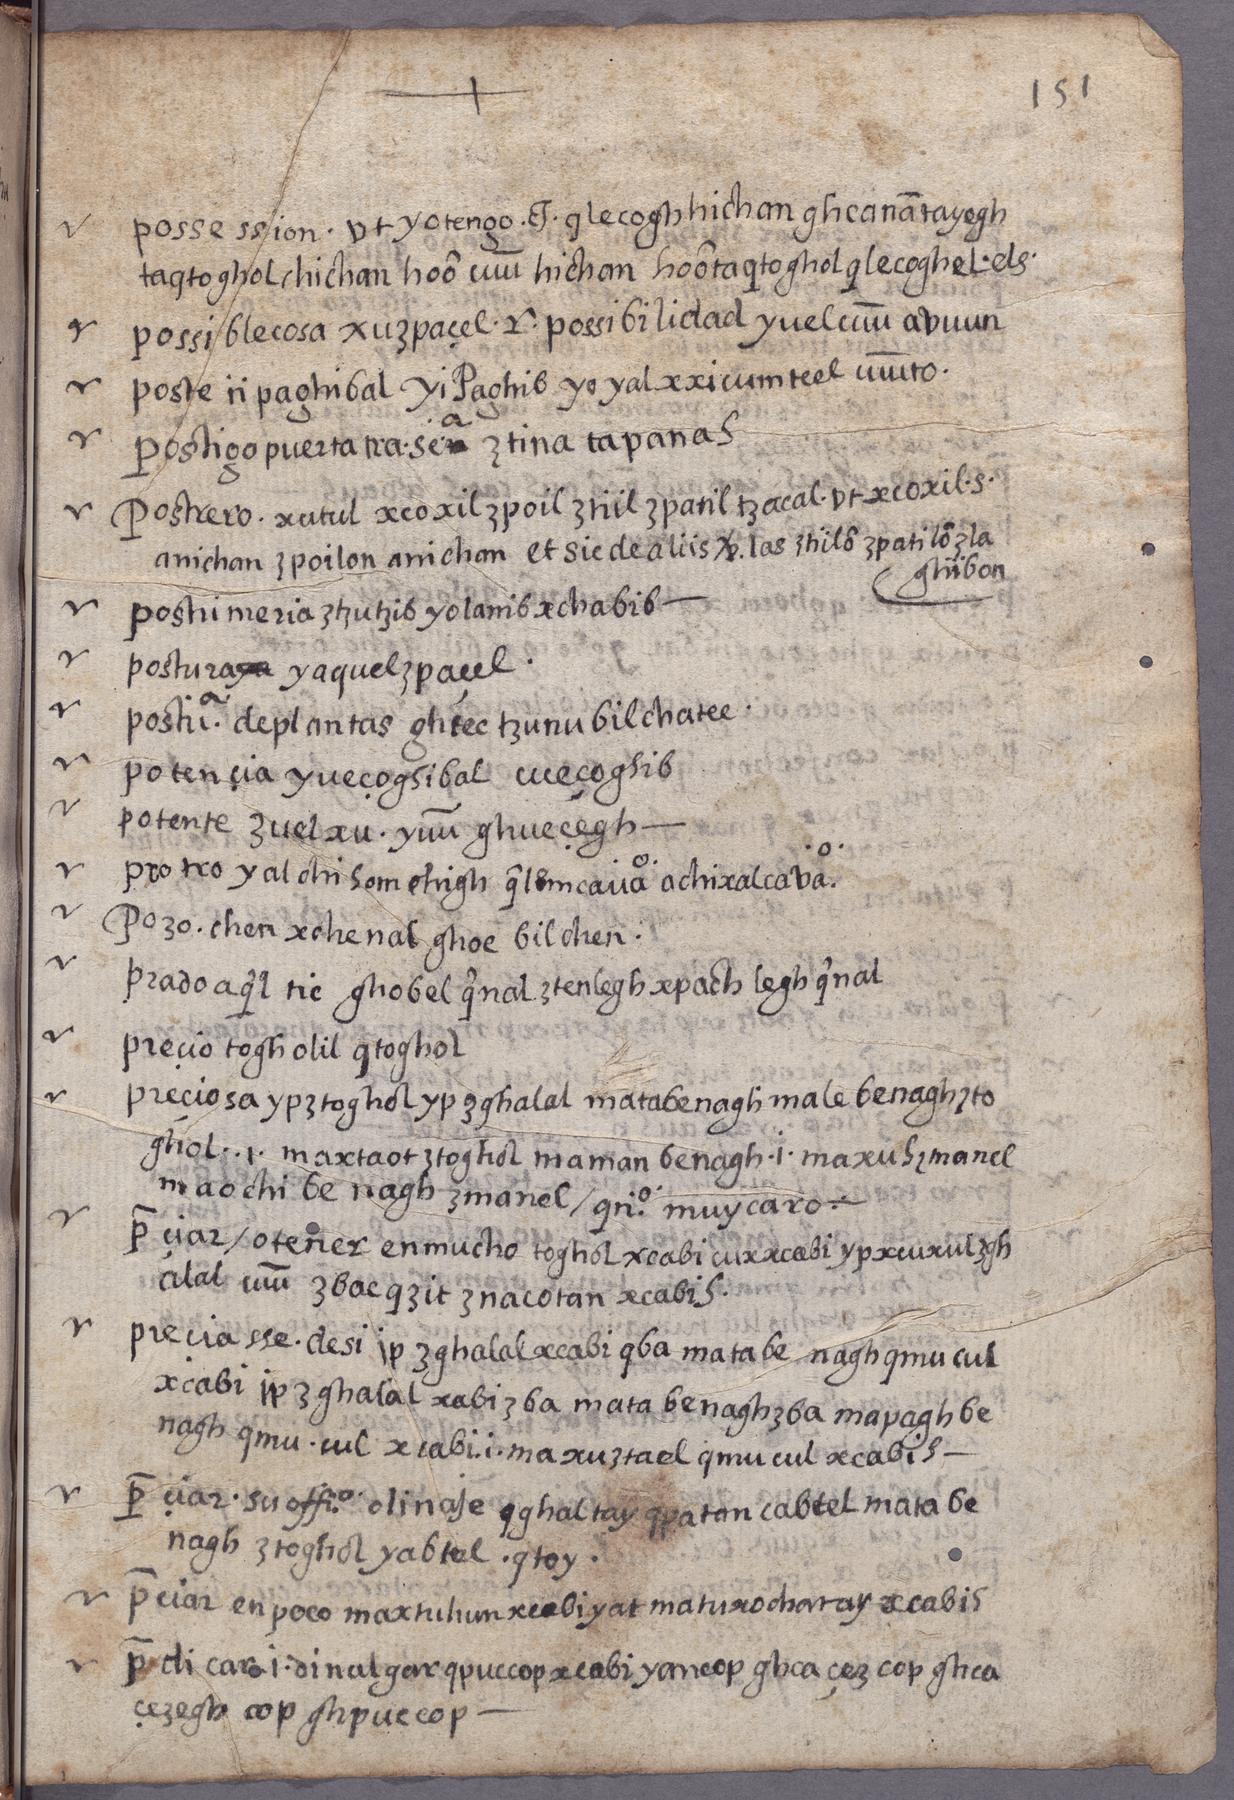 151
possession. vt yotengo. qlecogh hichan ghcanātayegh
taqtoghol/hichan hoō uū hichan hoōtaqtoghol qlecoghel.els.
possiblecosa xuʒpaçel. r. possibilidad yuel uū avuun
poste ii paghibal yi Paghib yo yal xxicumteel uūto.
Postigo puerta tra.sera ʒtina tapanas
Postrero. xutul xcoxil ʒpoil ʒtiil ʒpatil tʒacal. vt xcoxil.s.
anichan ʒpoilon anichan et sic de aliis. las ʒtilō ʒpatilō ʒla
ghibon
postrimeria ʒtʒutʒib yolanib xchabib—
postura yaquel ʒpaçel.
postuª. deplantas ghtec tʒunubil chatee.
potençia yueçoghibal ueçoghib
potente ʒuel xu. yuū ghueçegh—
protro yalchi som chigh q̄l achixalcavaº.
Poʒo. chen xchenal ghoc bilchen.
prado aq̄l tic ghobel q̄nal ʒtenlegh xpach legh q̄nal
preçio togholil qtoghol
preçiosa ypʒtoghol ypʒghalal matabenagh male benaghʒto
ghol..i. maxtaot ʒtoghol maman benagh.i. maxuhʒmanel
maochi benagh ʒmanel/qriº. muy caro—
p̄çiar/otener enmucho toghol xcabi cuxxcabi ypxcuxulʒgh
alal uū ʒbac qʒit ʒnacotan xcabis.
preciasse. desi ip ʒghalal xcabi qba matabe nagh qmucul
xcabi ip ʒghalal xabi ʒba mata benaghʒba mapaghbe
nagh qmu.cul xcabi.i. maxuʒtael qmucul xcabis—
p̄çiar. su offiº. olinaje qghaltay qpatan cabtel matabe
nagh ʒtoghol yabtel. qtoy.
p̄çiar en poco maxtuhun xcabi yat matuxochatay xcabis
p̄dicar.i. dinulgar qpuccop xcabi yancop ghca çeʒ cop ghca
çeʒegh cop ghpuccop—